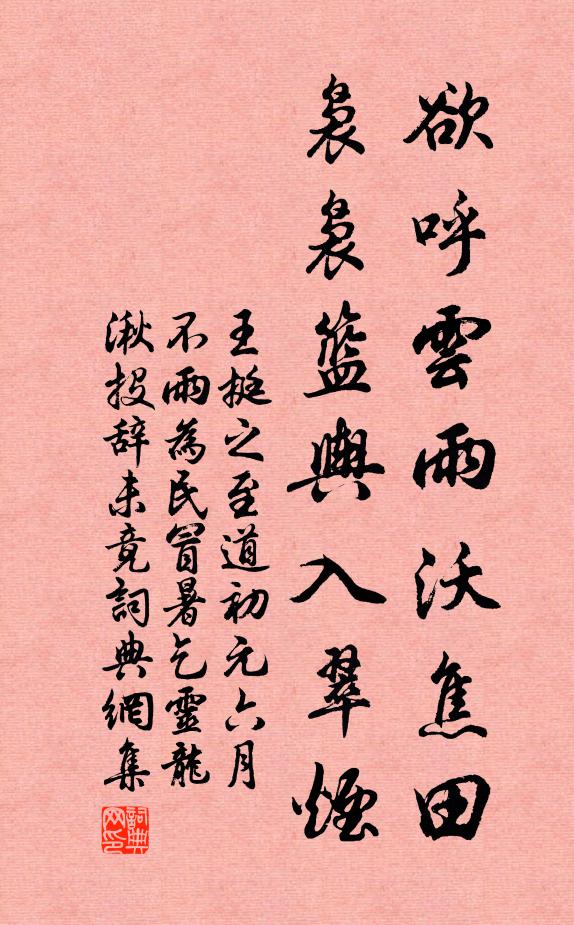 欲呼雲雨沃焦田
裊裊籃輿入翠煙
王挺之至道初元六月
不雨為民冒暑乞靈龍
湫投辞未竟詞典網集
詞典
网印